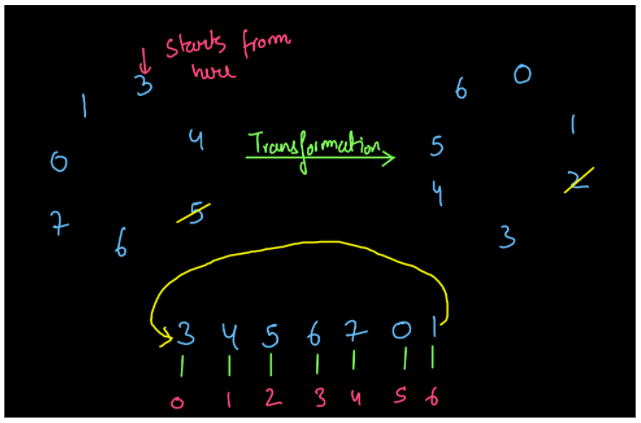 starts from
here
3
1
4
0
5
7
6
Transformation
6
0
1
5
2
4
3
3 4 5 6 7 0 1
0 1 2 3 4 5 6